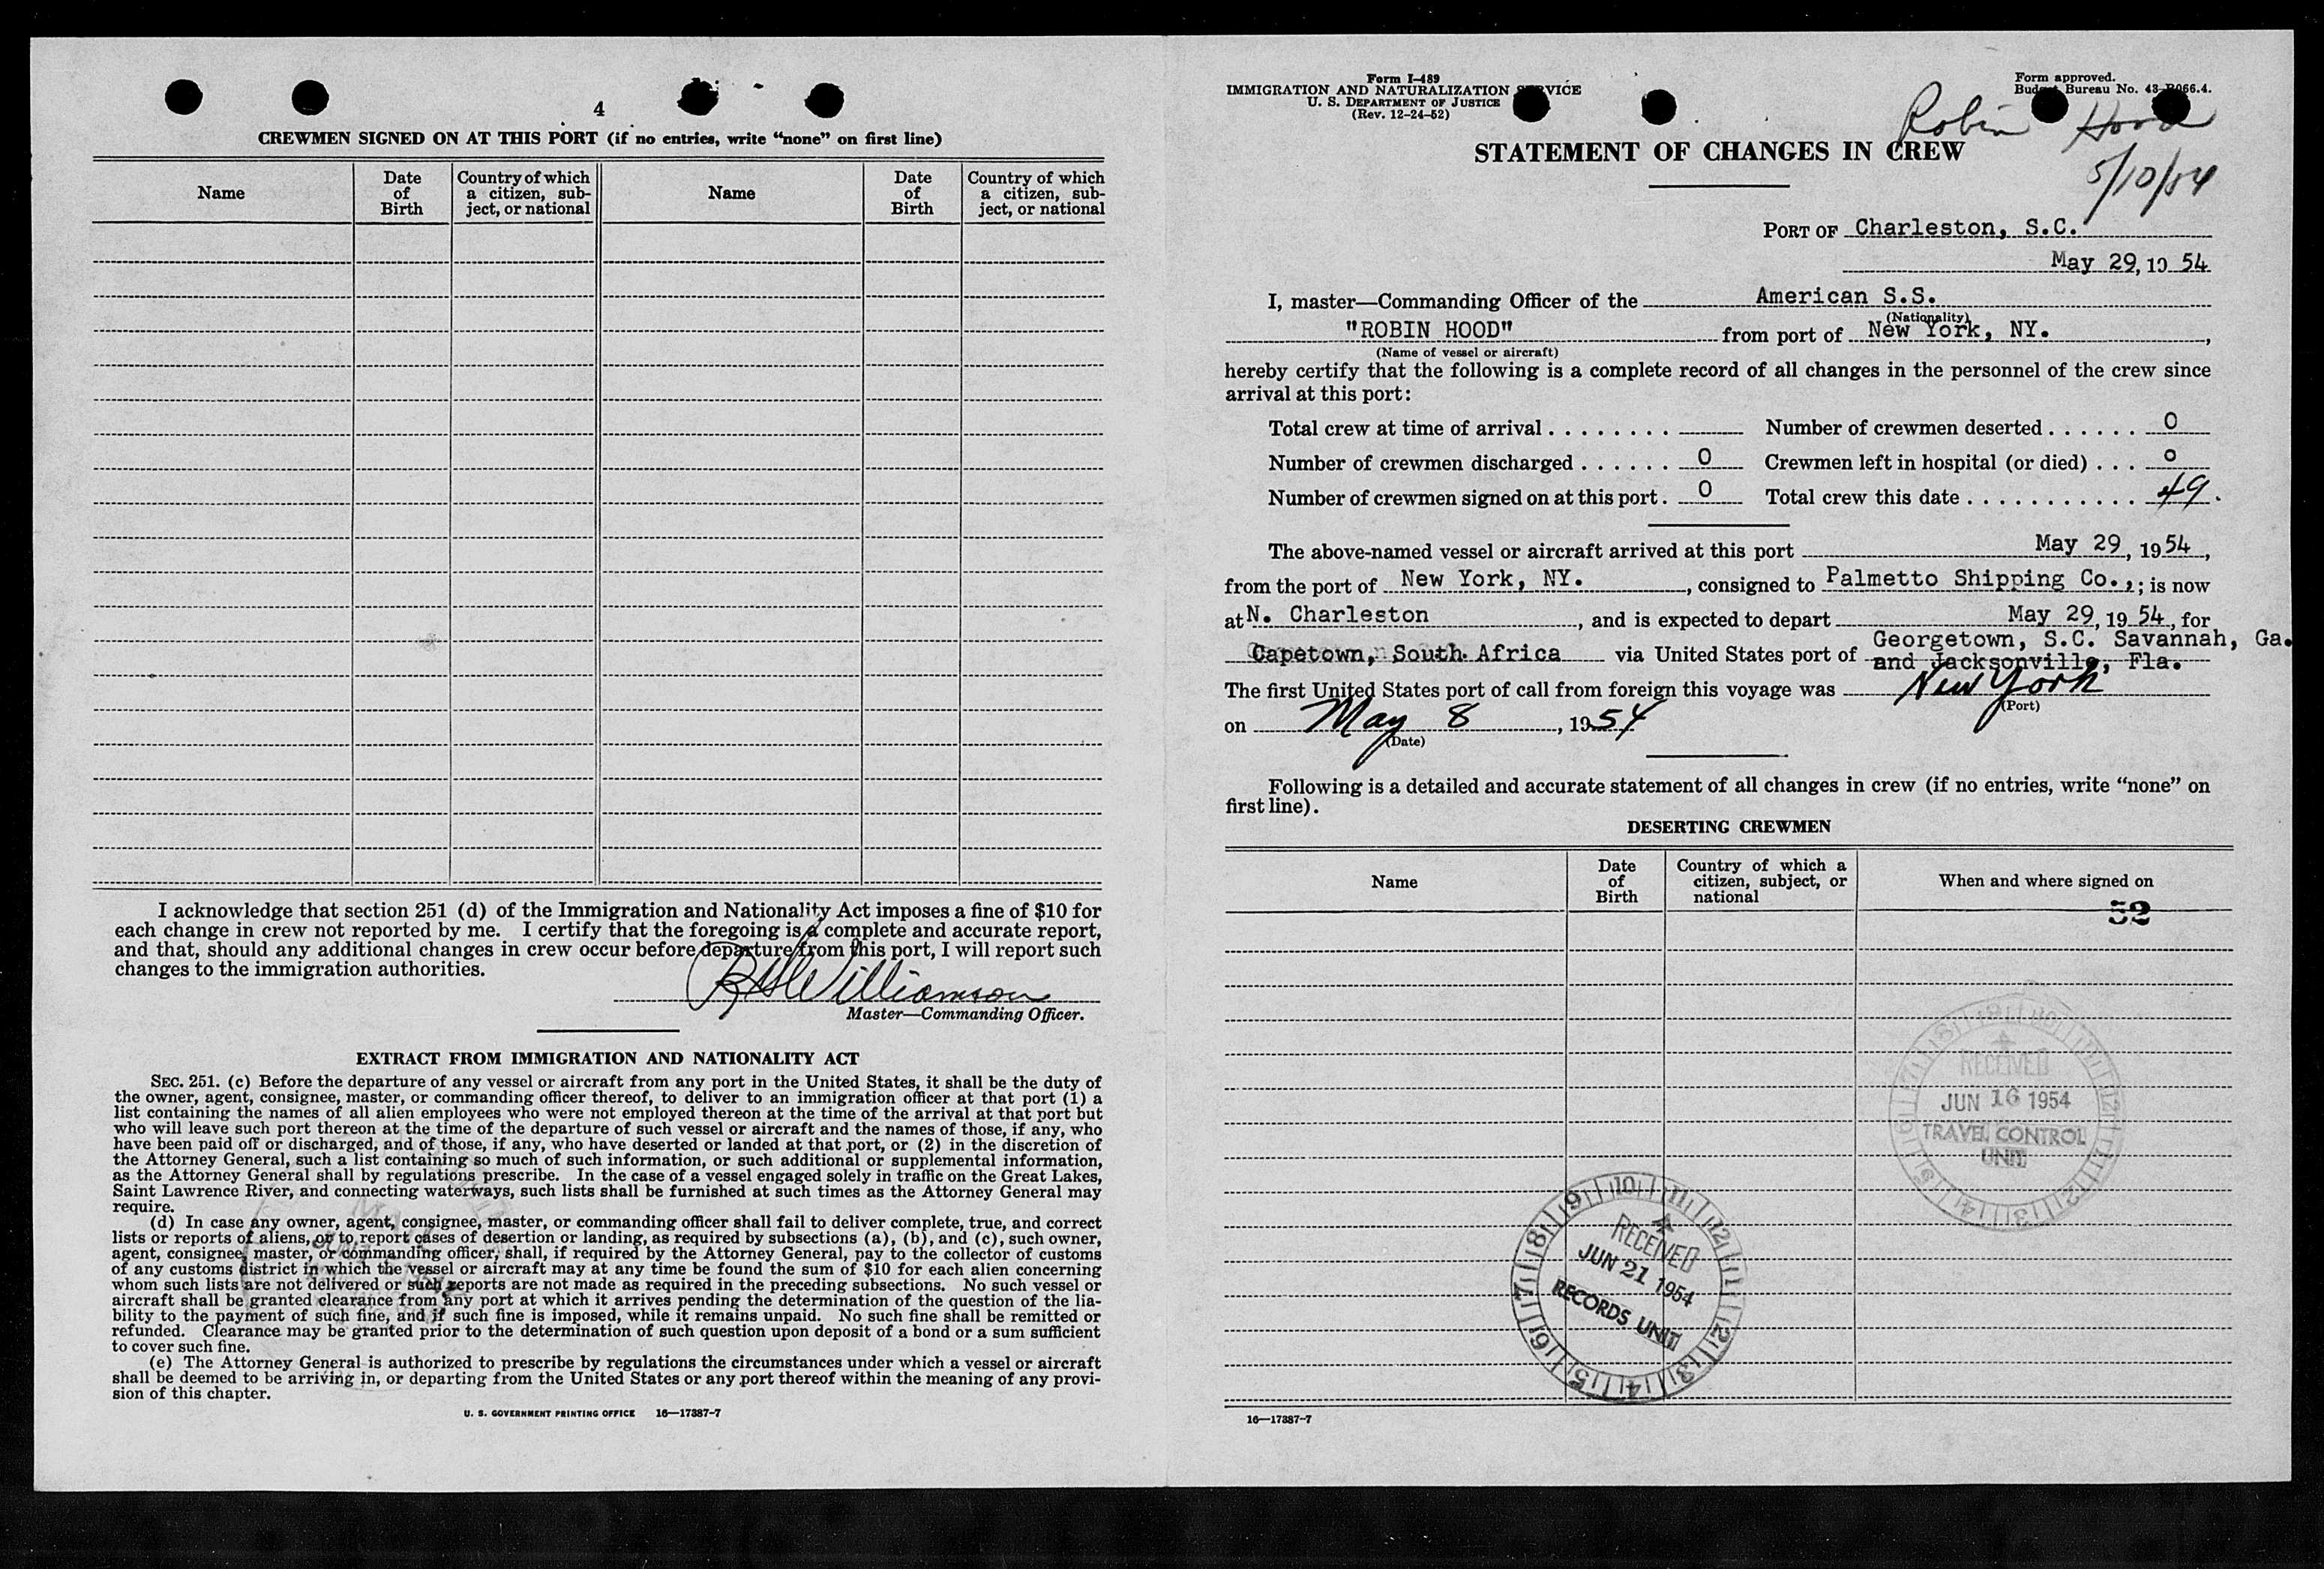 4
CREWMEN SIGNED ON AT THIS PORT (if no entries, write “none” on first line)
Name
Date of Birth
Country of which a citizen, sub-ject, or national
Name
Date of Birth
Country of which a citizen, sub-ject, or national
I acknowledge that section 251 (d) of the Immigration and Nationality Act imposes a fine of $10 for
each change in crew not reported by me. I certify that the foregoing is a complete and accurate report,
and that, should any additional changes in crew occur before departure from this port, I will report such
changes to the immigration authorities.
R H Williamson
Master—Commanding Officer.
EXTRACT FROM IMMIGRATION AND NATIONALITY ACT
SEC. 251. (c) Before the departure of any vessel or aircraft from any port in the United States, it shall be the duty of
the owner, agent, consignee, master, or commanding officer thereof, to deliver to an immigration officer at that port (1) a
list containing the names of all alien employees who were not employed thereon at the time of the arrival at that port but
who will leave such port thereon at the time of the departure of such vessel or aircraft and the names of those, if any, who
have been paid off or discharged, and of those, if any, who have deserted or landed at that port, or (2) in the discretion of
the Attorney General, such a list containing so much of such information, or such additional or supplemental information,
as the Attorney General shall by regulations prescribe. In the case of a vessel engaged solely in traffic on the Great Lakes,
Saint Lawrence River, and connecting waterways, such lists shall be furnished at such times as the Attorney General may
require.
(d) In case any owner, agent, consignee, master, or commanding officer shall fail to deliver complete, true, and correct
lists or reports of aliens, or to report cases of desertion or landing, as required by subsections (a), (b), and (c), such owner,
agent, consignee, master, or commanding officer, shall, if required by the Attorney General, pay to the collector of customs
of any customs district in which the vessel or aircraft may at any time be found the sum of $10 for each alien concerning
whom such lists are not delivered or such reports are not made as required in the preceding subsections. No such vessel or
aircraft shall be granted clearance from any port at which it arrives pending the determination of the question of the lia-
bility to the payment of such fine, and if such fine is imposed, while it remains unpaid. No such fine shall be remitted or
refunded. Clearance may be granted prior to the determination of such question upon deposit of a bond or a sum sufficient
to cover such fine.
(e) The Attorney General is authorized to prescribe by regulations the circumstances under which a vessel or aircraft
shall be deemed to be arriving in, or departing from the United States or any port thereof within the meaning of any provi-
sion of this chapter.
U. S. GOVERNMENT PRINTING OFFICE 16—17387-7
Form I-489
IMMIGRATION AND NATURALIZATION SERVICE
U. S. DEPARTMENT OF JUSTICE
(Rev. 12-24-52)
Form approved.
Budget Bureau No. 43-R066.4.
Robin Hood
5/10/54
STATEMENT OF CHANGES IN CREW
PORT OF Charleston, S.C.
May 29, 19 54
I, master—Commanding Officer of the American S.S.
(Nationality)
"ROBIN HOOD" from port of New York, NY.,
(Name of vessel or aircraft)
hereby certify that the following is a complete record of all changes in the personnel of the crew since
arrival at this port:
Total crew at time of arrival ........ Number of crewmen deserted ...... 0
Number of crewmen discharged ...... 0 Crewmen left in hospital (or died) ... 0
Number of crewmen signed on at this port . 0 Total crew this date ........... 49.
The above-named vessel or aircraft arrived at this port May 29, 1954,
from the port of New York, NY., consigned to Palmetto Shipping Co.,; is now
at N. Charleston, and is expected to depart May 29, 19 54, for
Capetown, South Africa via United States port of Georgetown, S.C. Savannah, Ga.
and Jacksonville, Fla.
The first United States port of call from foreign this voyage was New York
(Port)
on May 8, 1954
(Date)
Following is a detailed and accurate statement of all changes in crew (if no entries, write “none” on
first line).
DESERTING CREWMEN
Name
Date of Birth
Country of which a citizen, subject, or national
When and where signed on
52
RECEIVED
JUN 16 1954
TRAVEL CONTROL
UNIT
RECEIVED
JUN 21 1954
RECORDS UNIT
16—17387-7